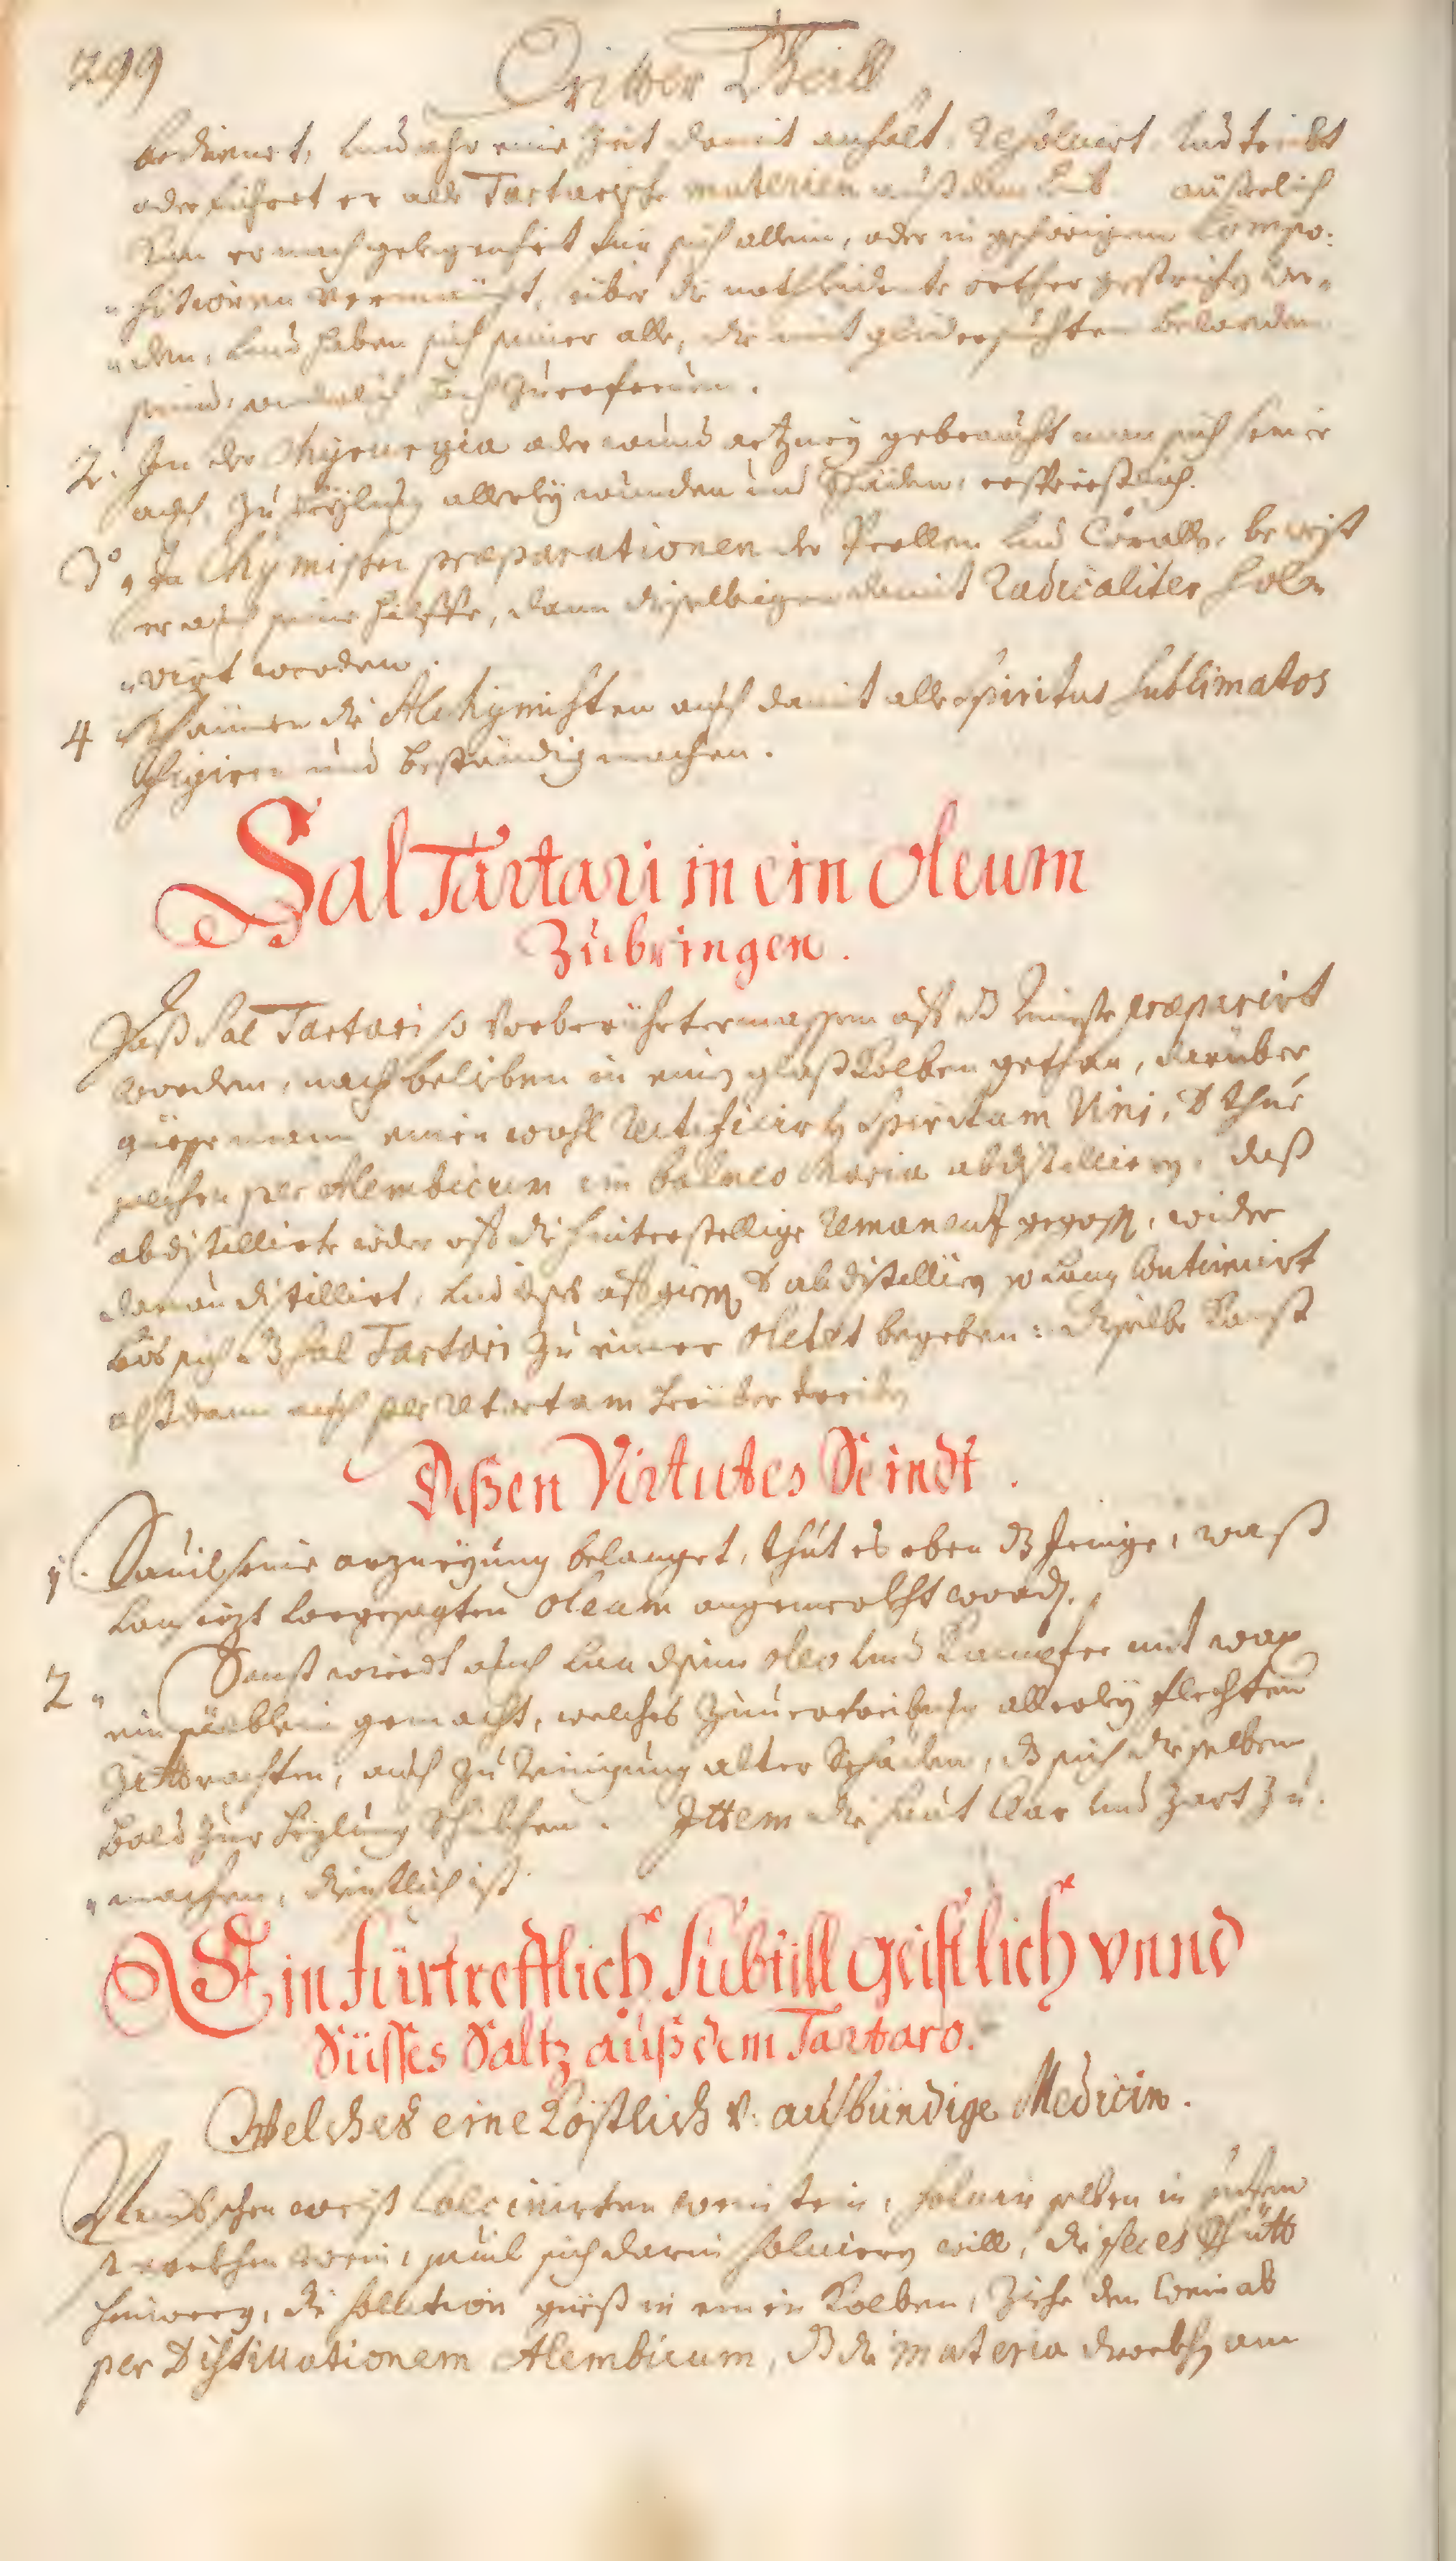 299
Dritter Theill
bedienet, vnd ehr eine Zeit damit anhalt, Resoluirt, vnd treibt
oder führet er alle Tartarische materien auß dem Leib äußerlich
kan er nach gelegenheit für sich allein, oder in gehörigem Compo:
sitionen vermischt, über die nothleidente orther gestrichen wer„
„den, vnd haben sich seiner alle, die mit gliedersuchten beladen
seind, hoch Zuerfreuen.
2. In der Chyrurgia oder wund artzney gebraucht man sich seiner
auch, zu heylung allerley wunden und Schäden, ersprießlich.
3° In Chymischen præparationen der Perllen vnd Corallen beweist
er auch seine hilffe, dann dieselbigen damit Radicaliter sol„
„virt werden.
4 Können die Alchymisten auch damit alle Spiritus Sublimatos
figiren und beständig machen.
Sal Tartari in ein Oleum
Zubringen.
Daß Sal Tartari so vorberührtermassen auf dz reinste præparirt
worden, nach belieben in einen glaß Kolben gethan, darüber
güesse mann einen wohl Rectificirten Spiritum Vini, d thue
solchen per Alembicum im balneo Maria abdistillieren, daß
abdistillierte wider auf die hinterstellige Remanentz gegossen, wider
daruon distilliert, vnd dises aufgiessen d abdistellieren so lang Continuirt
bis sich dz Sal Tartari Zu einer Oletet begeben: dieselbe kanst
alßdann auch per Retortam herüber treiben
Dißen Virtutes Seindt.
1. Souil seine artzneyung belanget, thut es eben dz Jenige, waß
von iezt vorgesagten Oleum angemerckht worden.
2„ Sonst wierdt auch von disem Oleo vnd Kampfer mit wax
ein sälblein gemacht, welches Zuuertreibung allerley flechten
Zittrachten, auch zu Reinigung alter Schäden, dz sich dieselben
bald zur heylung schickhen. Ittem die haut klar vnd zart zu„
„machen, dienstlich ist
Ein fürtrefflich Subtill geistlich vnnd
Süsses Saltz auß dem Tartaro.
Welches eine Köstlich v. ausbündige Medicin.
Nemb schen weiß Calcinirten weinstein, soluir selben in gutem
starckhen wein, souil sich darin soluieren will, die feces schütt
hinweg, die sollution gueß in einen Kolben, Ziehe den Wein ab
per Distillationem Alembicum, dz die materia druckhen am